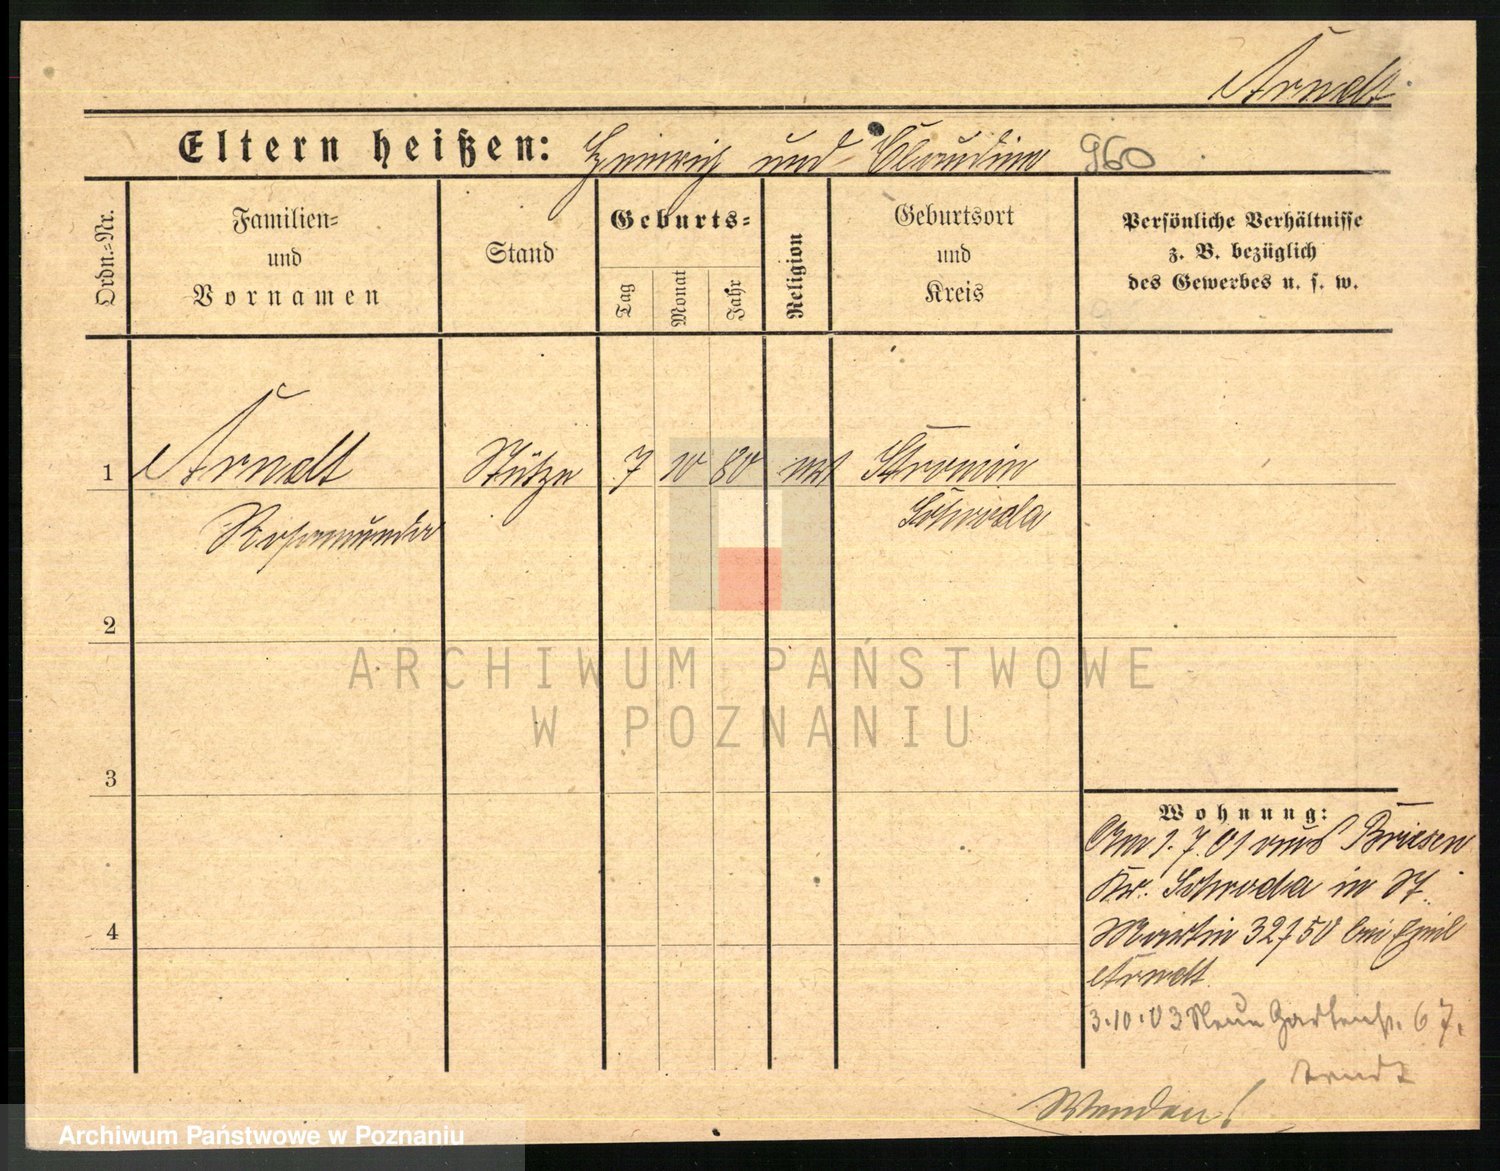 Arndt
Eltern heißen: Heinrich und Claudine 960
Ordn.=Nr.
Familien=
und
Vornamen
Stand
Geburts=
Tag
Monat
Jahr
Religion
Geburtsort
und
Kreis
Persönliche Verhältnisse
z. B. bezüglich
des Gewerbes u. s. w.
1 Arndt Stütze 7 10 80
Rosamunde
Schroda
2
ARCHIWUM PAŃSTWOWE
W POZNANIU
3
Wohnung:
Am 1.7.01 aus Briesen
Kr. Schroda in St.
4
Martin 32 bei Emil
Arndt
3.10.03 Neue Gartenstr. 67.
Arndt
Wenden!
Archiwum Państwowe w Poznaniu